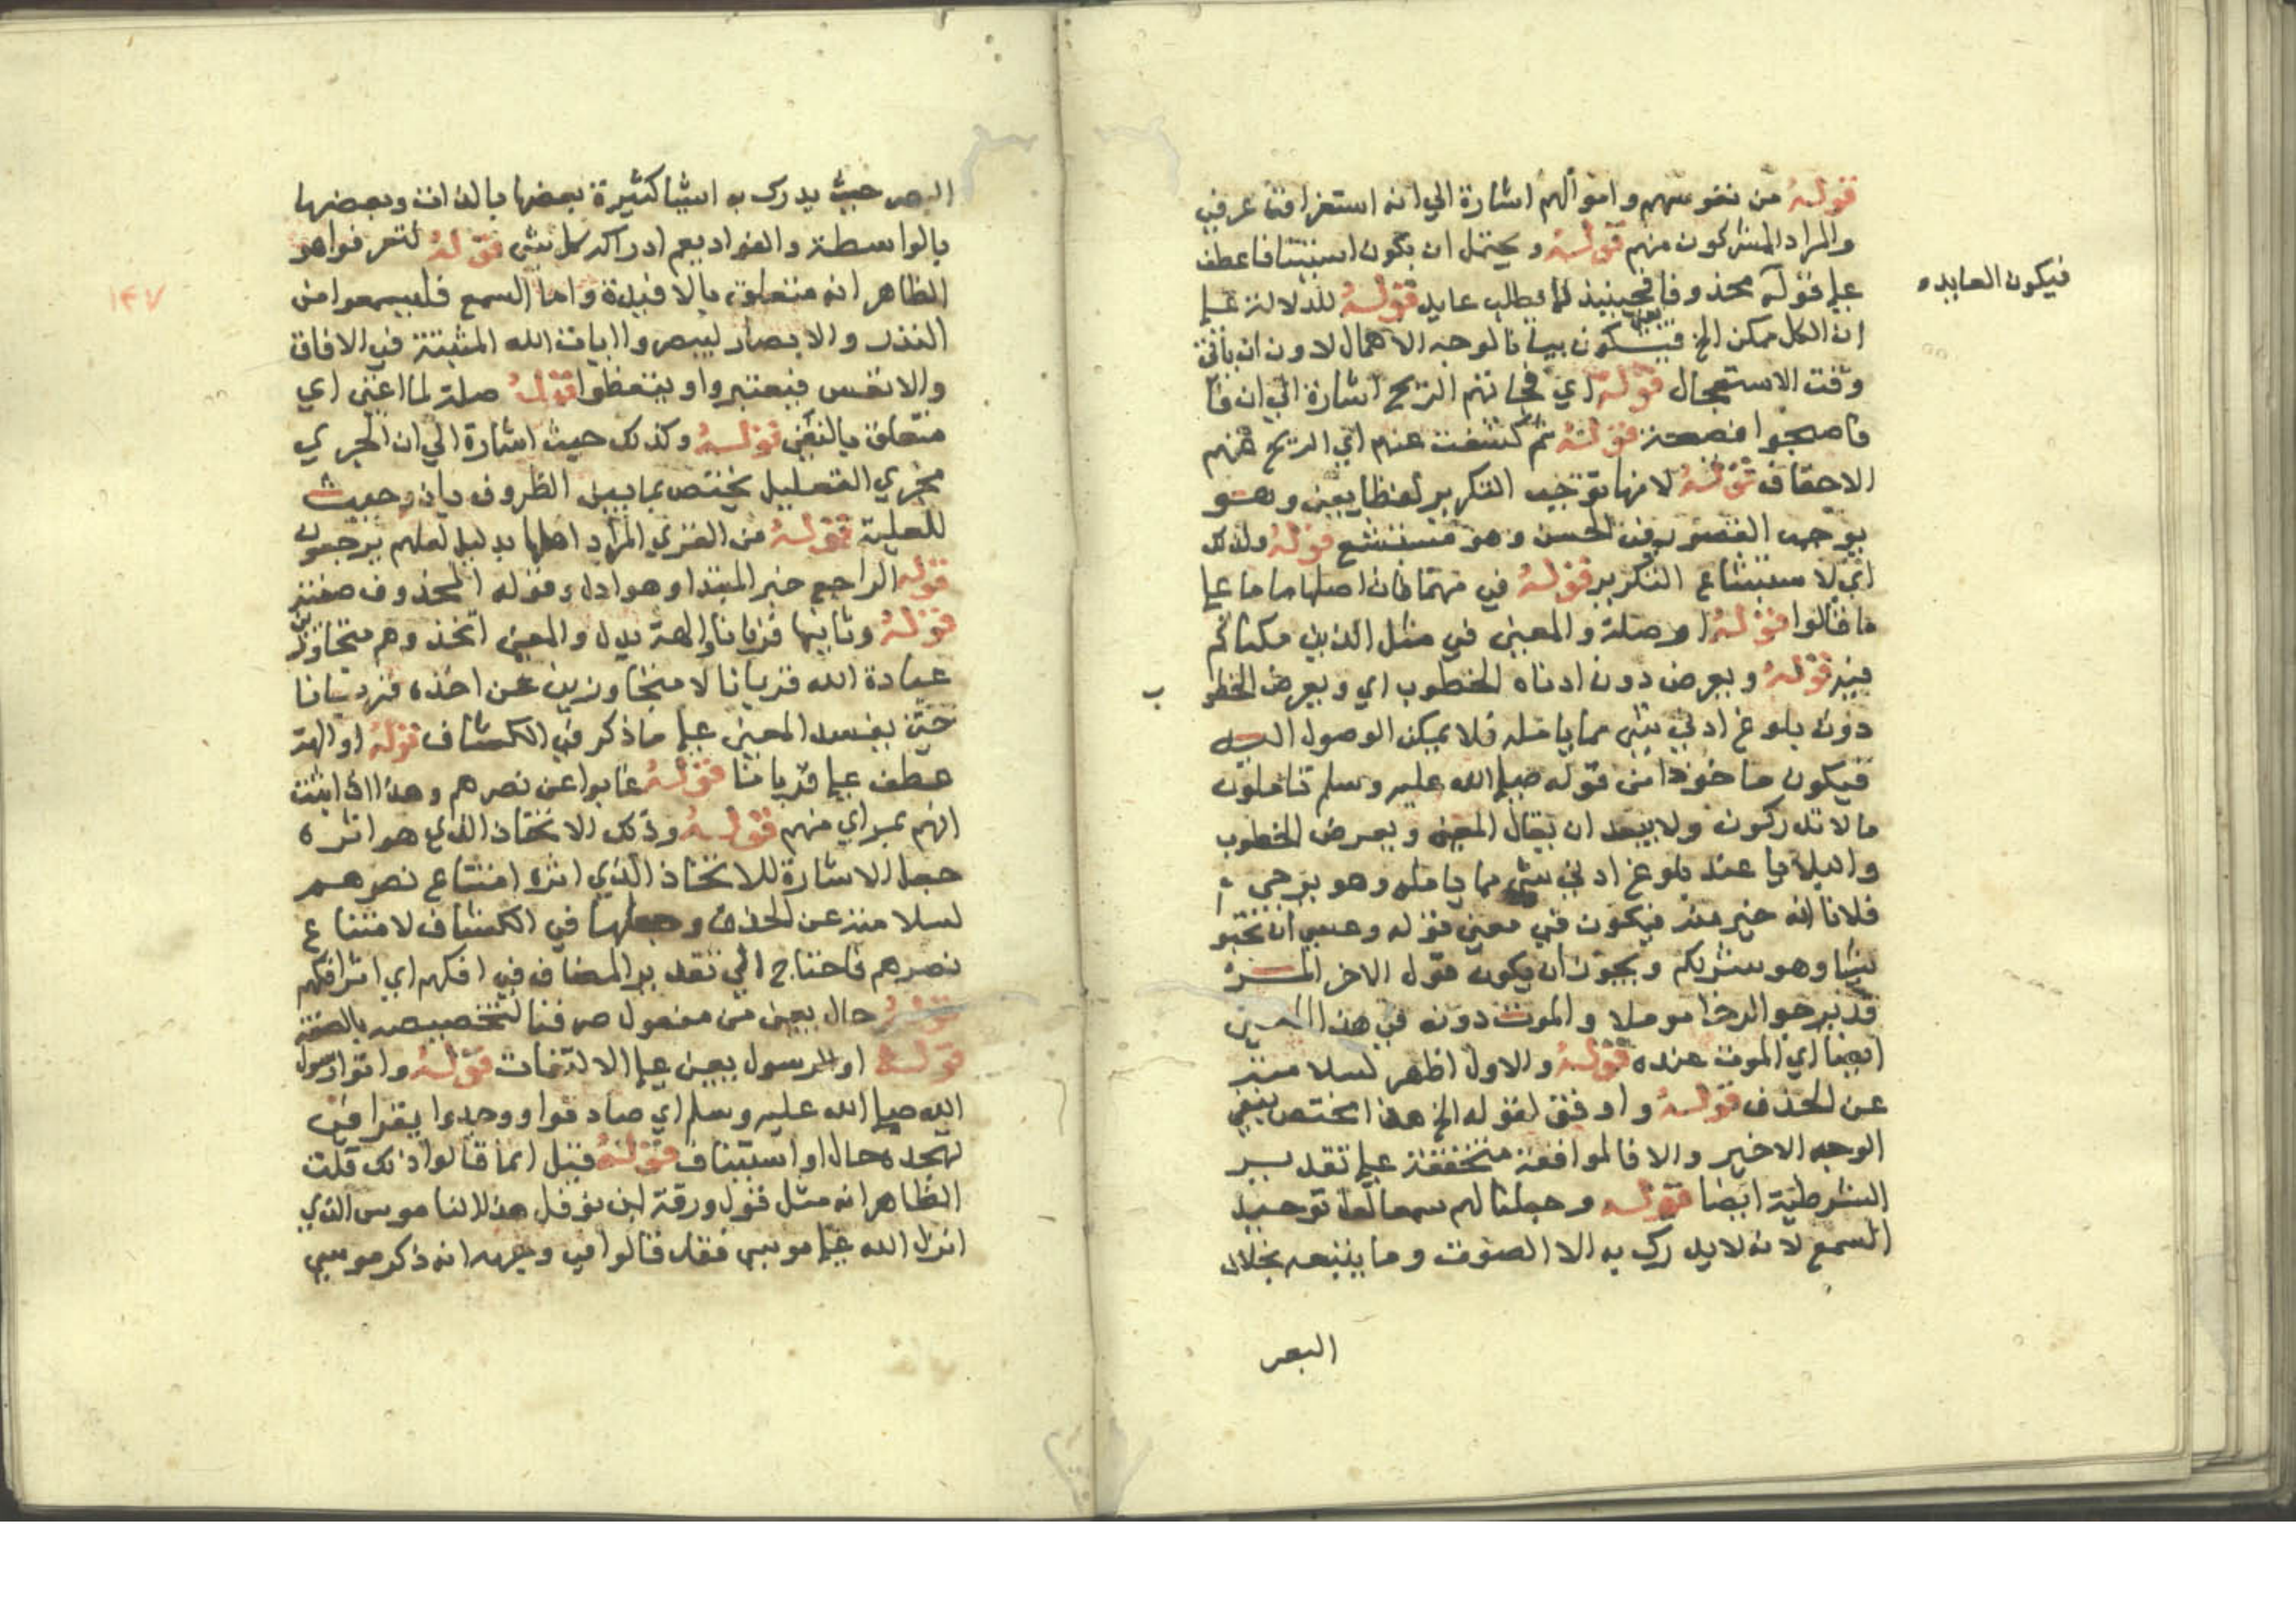 قوله من نفوسهم واموالهم اشارة الي انه استغراق عرفي
والمراد المشركون منهم قوله ويحتمل ان يكون استينافا عطف
علي قوله محذوفا فحينيذ لا يطلب عايد قوله للدلالة علي
فيكون العايده
ان الكل ممكن الخ فيكون بيانا لوجه الامهال لا دون ان ياتي
وقت الاستعجال قوله اي فجاتهم الريح اشارة الي ان فا
فاصبحوا فصحة قوله ثم كشفت عنهم اي الريح عنهم
الاحقاف قوله لانها توجب التكرير لفظا يعني وهو
يوجب القصور في الحسن وهو مستبشع قوله ولذلك
اي لاستبشاع التكرير قوله في مهما فان اصلها ما ما علي
ما قالوا قوله او صلة والمعني في مثل الذين مكناكم
فيه قوله ويعرض دون ادناه الخطوب اي ويعرض الخطو
ب
دون بلوغ ادني شي مما يامله فلا يمكن الوصول اليه
فيكون ماخوذا من قوله صلي الله عليه وسلم تاملون
ما لا تدركون ولا يبعد ان يقال المعني ويعرض الخطوب
والبلايا عند بلوغ ادني شي مما يامله وهو يرجي
فلانا انه خير منه فيكون في معني قوله وعسي ان تحبو
شيا وهو شر لكم ويجوز ان يكون قول الاخر المر
قد يرجو الرخا موملا والموت دونه في هذا المعني
ايضا اي الموت عنده قوله والاول اظهر لسلامته
عن الحذف قوله واوفق لقوله الخ هذا مختص بنفي
الوجه الاخير والا فالموافقة متحققة علي تقدير
الشرطية ايضا قوله وجعلنا لهم سمعا لعل توحيد
السمع لانه لا يدرك به الا الصوت وما يتبعه بخلاف
البصر
البصر حيث يدرك به اشيا كثيرة بعضها بالذات وبعضها
بالواسطة والفواد يعم ادراكه كل شي قوله لتعرفوا هو
الظاهر انه متعلق بالافيدة واما السمع فليسمعوا من
١٤٧
النذر والابصار ليبصروا ايات الله المثبتة في الافاق
والانفس فيعتبروا ويتعظوا قوله صلة لما اغني اي
متعلق بالنفي قوله وكذلك حيث اشارة الي ان الجري
مجري التعليل يختص بما بين الظروف بان وحيث
للعلية قوله من القري المراد اهلها بدليل لعلهم يرجعون
قوله الراجع خبر المبتدا وهو ادل وقوله المحذوف صفته
قوله وثانيها قربانا والهة بدل والمعني اتخذوهم متجاوزين
عبادة الله قربانا لا متجاوزين عن اخذه قربانا
حتي يفسد المعني علي ما ذكر في الكشاف قوله او الهة
عطف علي قربانا قوله غابوا عن نصرهم وهذا اذا ثبت
انهم بمراي منهم قوله وذلك الاتخاذ الذي هو اثره
جعل الاشارة للاتخاذ الذي اثره امتناع نصرهم
لسلامته عن الحذف وجعلها في الكشاف لامتناع
نصرهم فاحتاج الي تقدير المضاف في افكهم اي اثر افكهم
قوله حال يعني من مفعول صرفنا لتخصيصه بالصفة
قوله او الرسول يعني علي الالتفات قوله وافوا رسول
الله صلي الله عليه وسلم اي صادفوا ووجدوا يقرا في
تهجده حال او استيناف قوله قيل انما قالوا ذلك قلت
الظاهر انه مثل قول ورقة ابن نوفل هذا الناموس الذي
انزل الله علي موسي فقد قالوا في وجهه انه ذكر موسي